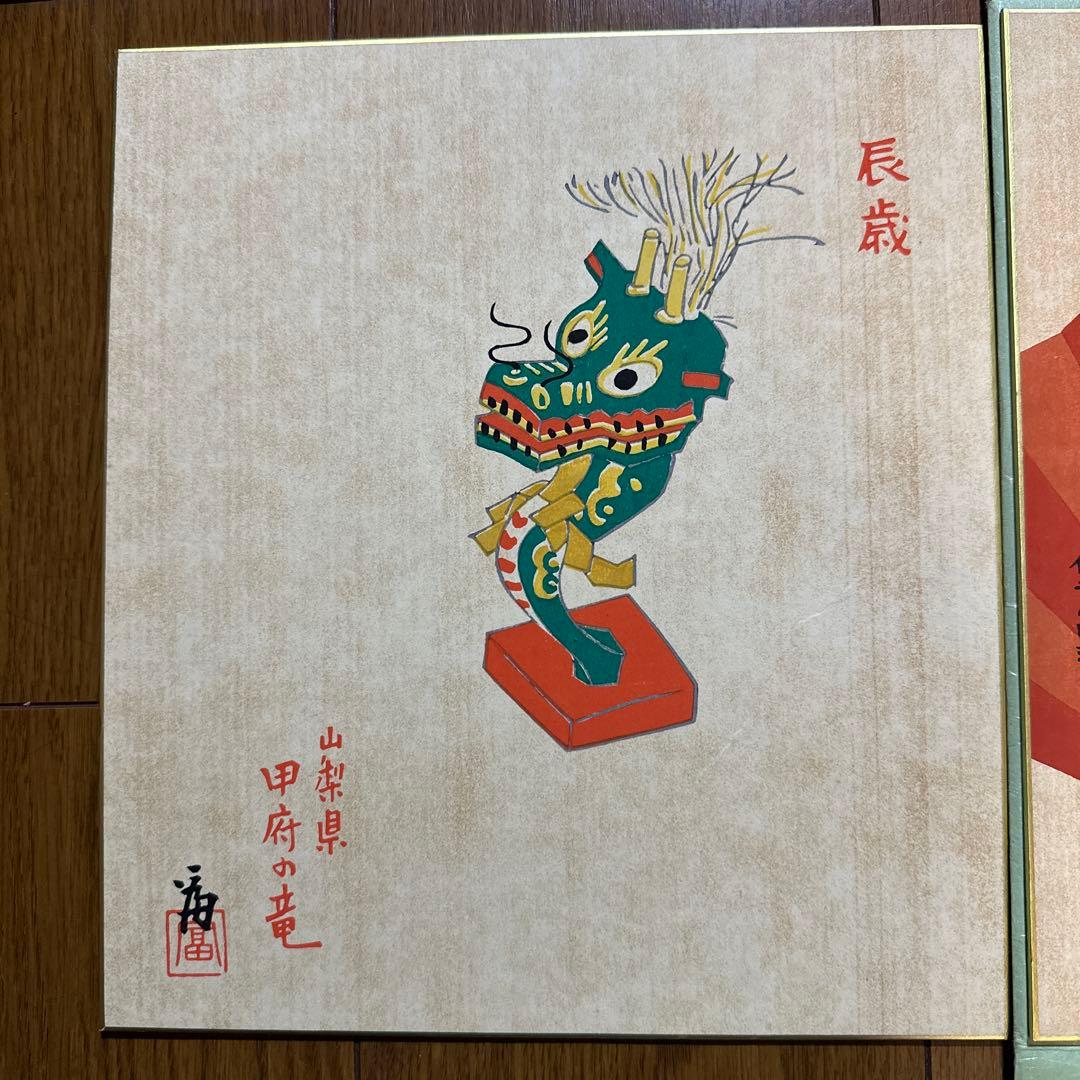 辰歳
山梨県
甲府の竜
富